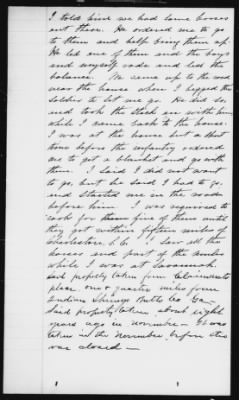 I told him we had some horses
out there. He ordered me to go
to them and help bring them up
He led one of them and the boys
and myself rode and led the
balance. We came up to the road
near the house when I begged the
soldier to let me go. He did so
and took the stock on with him
while I came back to the house.
I was at the house but a short
time before the infantry ordered
me to get a blanket and go with
them. I said I did not want
to go, but he said I had to go,
and started me in the road
before him. I was required to
cook for these five of them until
they got within fifteen miles of
Charleston, S.C. I saw all the
horses and part of the mules
while I was at Savannah.
said property taken from Claimants
place one & quarter miles from
Indian Springs Butts Co Ga—
Said property taken about eight
years ago in November— It was
taken in the November, before the
war closed—